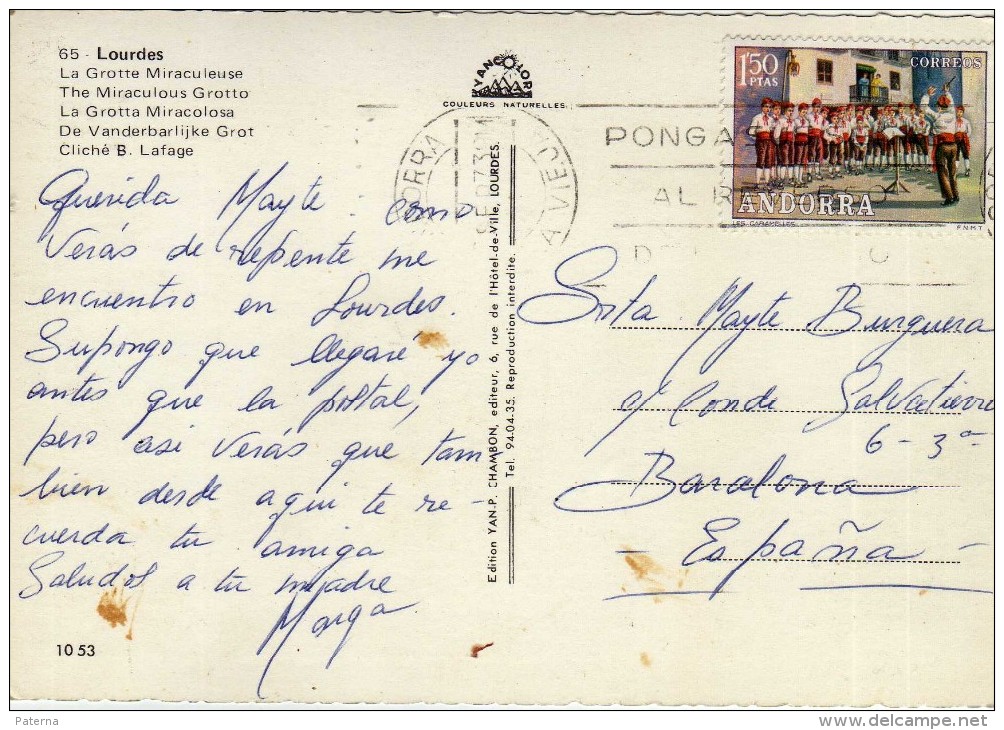 65 - Lourdes
La Grotte Miraculeuse
The Miraculous Grotto
La Grotta Miracolosa
De Vanderbarlijke Grot
Cliché B. Lafage
YANCOLOR
COULEURS NATURELLES
Querida Mayte: como
verás de repente me
encuentro en Lourdes.
Supongo que llegaré yo
antes que la postal,
pero asi verás que tam
bien desde aqui te re-
cuerda tu amiga
Saludos a tu madre
Marga
10 53
Edition YAN-P. CHAMBON, editeur, 6, rue de l'Hôtel-de-Ville, LOURDES.
Tel. 94-04-35. Reproduction interdite.
1'50 PTAS
CORREOS
ANDORRA
LES CARAMELLES
F.N.M.T.
PONGA
AL
Srta Mayte Burguera
c/ Conde Salvatierra
6 - 3ª
Barcelona
- España -
Paterna
www.delcampe.net